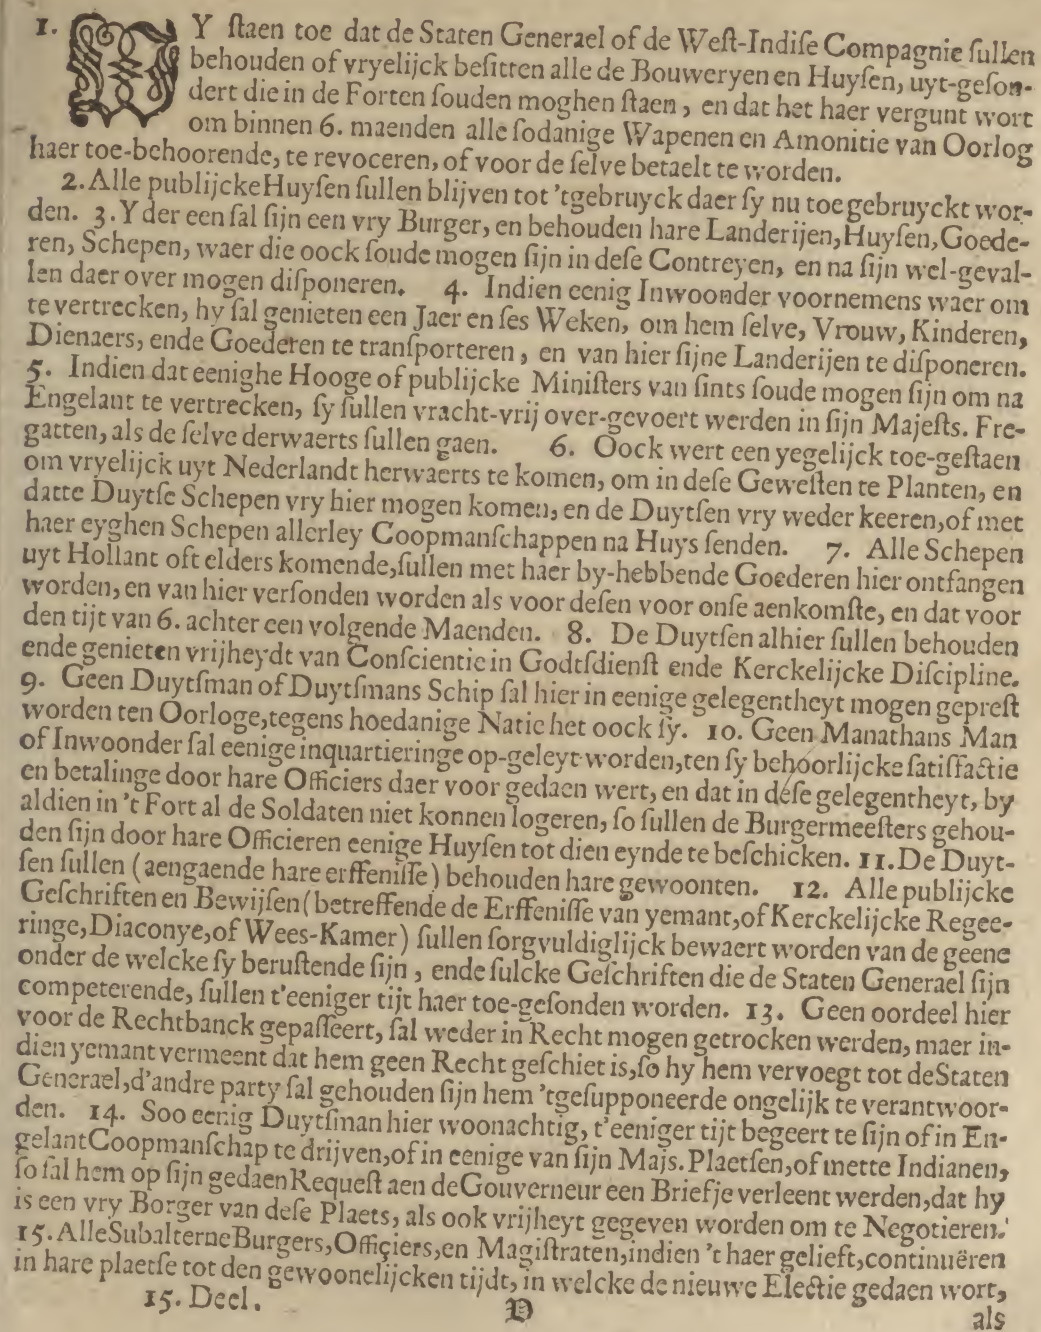 1. WY ſtaen toe dat de Staten Generael of de Weſt-Indiſe Compagnie ſullen
behouden of vryelijck beſitten alle de Bouweryen en Huyſen, uyt-geſon-
dert die in de Forten ſouden moghen ſtaen, en dat het haer vergunt wort
om binnen 6. maenden alle ſodanige Wapenen en Amonitie van Oorlog
haer toe-behoorende, te revoceren, of voor de ſelve betaelt te worden.
2. Alle publijcke Huyſen ſullen blijven tot 'tgebruyck daer ſy nu toe gebruyckt wor-
den. 3. Yder een ſal ſijn een vry Burger, en behouden hare Landerijen, Huyſen, Goede-
ren, Schepen, waer die oock ſoude mogen ſijn in deſe Contreyen, en na ſijn wel-geval-
len daer over mogen diſponeren. 4. Indien eenig Inwoonder voornemens waer om
te vertrecken, hy ſal genieten een Jaer en ſes Weken, om hem ſelve, Vrouw, Kinderen,
Dienaers, ende Goederen te tranſporteren, en van hier ſijne Landerijen te diſponeren.
5. Indien dat eenighe Hooge of publijcke Miniſters van ſints ſoude mogen ſijn om na
Engelant te vertrecken, ſy ſullen vracht-vrij over-gevoert werden in ſijn Majeſts. Fre-
gatten, als de ſelve derwaerts ſullen gaen. 6. Oock wert een yegelijck toe-geſtaen
om vryelijck uyt Nederlandt herwaerts te komen, om in deſe Geweſten te Planten, en
datte Duytſe Schepen vry hier mogen komen, en de Duytſen vry weder keeren, of met
haer eyghen Schepen allerley Coopmanſchappen na Huys ſenden. 7. Alle Schepen
uyt Hollant oft elders komende, ſullen met haer by-hebbende Goederen hier ontfangen
worden, en van hier verſonden worden als voor deſen voor onſe aenkomſte, en dat voor
den tijt van 6. achter een volgende Maenden. 8. De Duytſen alhier ſullen behouden
ende genieten vrijheydt van Conſcientie in Godtſdienſt ende Kerckelijcke Diſcipline.
9. Geen Duytſman of Duytſmans Schip ſal hier in eenige gelegentheyt mogen gepreſt
worden ten Oorloge, tegens hoedanige Natie het oock ſy. 10. Geen Manathans Man
of Inwoonder ſal eenige inquartieringe op-geleyt worden, ten ſy behoorlijcke ſatiſfactie
en betalinge door hare Officiers daer voor gedaen wert, en dat in deſe gelegentheyt, by
aldien in 't Fort al de Soldaten niet konnen logeren, ſo ſullen de Burgermeeſters gehou-
den ſijn door hare Officieren eenige Huyſen tot dien eynde te beſchicken. 11. De Duyt-
ſen ſullen (aengaende hare erffeniſſe) behouden hare gewoonten. 12. Alle publijcke
Geſchriften en Bewijſen (betreffende de Erffeniſſe van yemant, of Kerckelijcke Regee-
ringe, Diaconye, of Wees-Kamer) ſullen ſorgvuldiglijck bewaert worden van de geene
onder de welcke ſy beruſtende ſijn, ende ſulcke Geſchriften die de Staten Generael ſijn
competerende, ſullen t'eeniger tijt haer toe-geſonden worden. 13. Geen oordeel hier
voor de Rechtbanck gepaſſeert, ſal weder in Recht mogen getrocken werden, maer in-
dien yemant vermeent dat hem geen Recht geſchiet is, ſo hy hem vervoegt tot de Staten
Generael, d'andre party ſal gehouden ſijn hem 'tgeſupponeerde ongelijk te verantwoor-
den. 14. Soo eenig Duytſman hier woonachtig, t'eeniger tijt begeert te ſijn of in En-
gelant Coopmanſchap te drijven, of in eenige van ſijn Majs. Plaetſen, of mette Indianen,
ſo ſal hem op ſijn gedaen Requeſt aen de Gouverneur een Briefje verleent werden, dat hy
is een vry Borger van deſe Plaets, als ook vrijheyt gegeven worden om te Negotieren.
15. Alle Subalterne Burgers, Officiers, en Magiſtraten, indien 't haer gelieft, continuëren
in hare plaetſe tot den gewoonelijcken tijdt, in welcke de nieuwe Electie gedaen wort,
15. Deel. D als